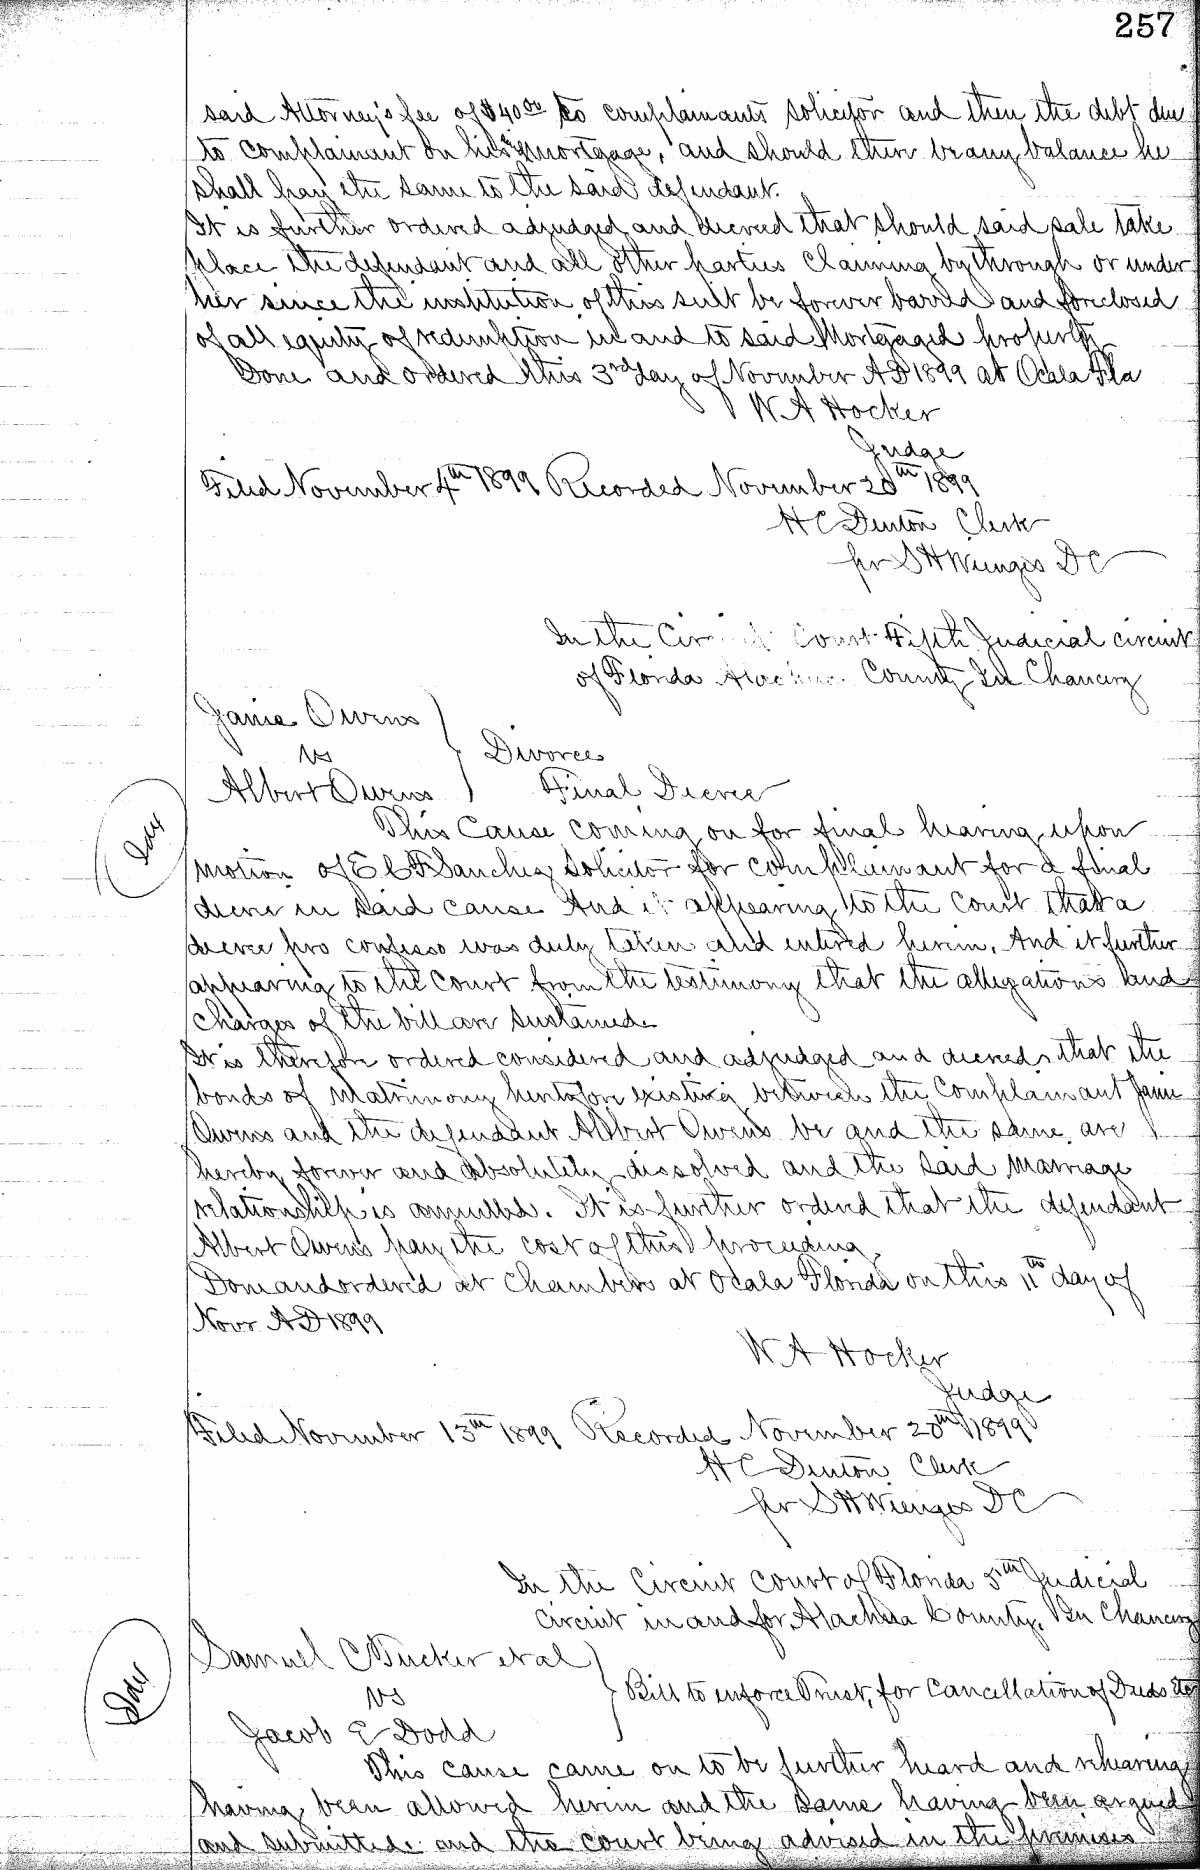 257
said Attorney's fee of $40.00 to complainants solicitor and then the debt due
to complainant on his mortgage, and should there be any balance he
shall pay the same to the said defendant.
It is further ordered adjudged and decreed that should said sale take
place the defendant and all other parties claiming by through or under
her since the institution of this suit be forever barred and foreclosed
of all equity of redemption in and to said Mortgaged property
Done and ordered this 3rd day of November AD 1899 at Ocala Fla
W A Hocker
Judge
Filed November 4th 1899 Recorded November 20th 1899
H C Denton Clerk
per S H Wienges D C
In the Circuit Court Fifth Judicial circuit
of Florida Alachua County In Chancery
Janie Owens
vs
Divorce
Albert Owens
Final Decree
This Cause coming on for final hearing upon
motion of E C F Sanchez Solicitor for complainant for a final
decree in said cause And it appearing to the Court that a
decree pro confesso was duly taken and entered herein, And it further
appearing to the Court from the testimony that the allegations and
charges of the bill are sustained.
It is therefore ordered considered and adjudged and decreed that the
bonds of matrimony heretofore existing between the Complainant Janie
Owens and the defendant Albert Owens be and the same are
hereby forever and absolutely dissolved and the said marriage
relationship is annulled. It is further ordered that the defendant
Albert Owens pay the cost of this proceeding.
Done and ordered at Chambers at Ocala Florida on this 11th day of
Novr AD 1899
W A Hocker
Judge
Filed November 13th 1899 Recorded November 20th 1899
H C Denton Clerk
per S H Wienges D C
In the Circuit Court of Florida 5th Judicial
Circuit in and for Alachua County, In Chancery
Samuel C Tucker et al
vs
Bill to enforce Trust, for Cancellation of Deeds etc
Jacob E Dodd
This cause came on to be further heard and rehearing
having been allowed herein and the same having been argued
and submitted and the court being advised in the premises